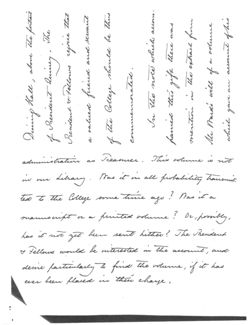 Dining Hall, above the portrait
of President Quincy. The
President & Fellows agree that
a valued friend and servant
of the College should be thus
commemorated.
In the note which accom-
panied this gift there was
mention in the extract from
Mr. Ward's will of a volume
which gave an account of his
administration as Treasurer. This volume is not
in our Library. Was it in all probability transmit-
ted to the College some time ago? Was it a
manuscript or a printed volume? Or, possibly,
has it not yet been sent hither? The President
& Fellows would be interested in the account, and
desire particularly to find the volume, if it has
ever been placed in their charge.